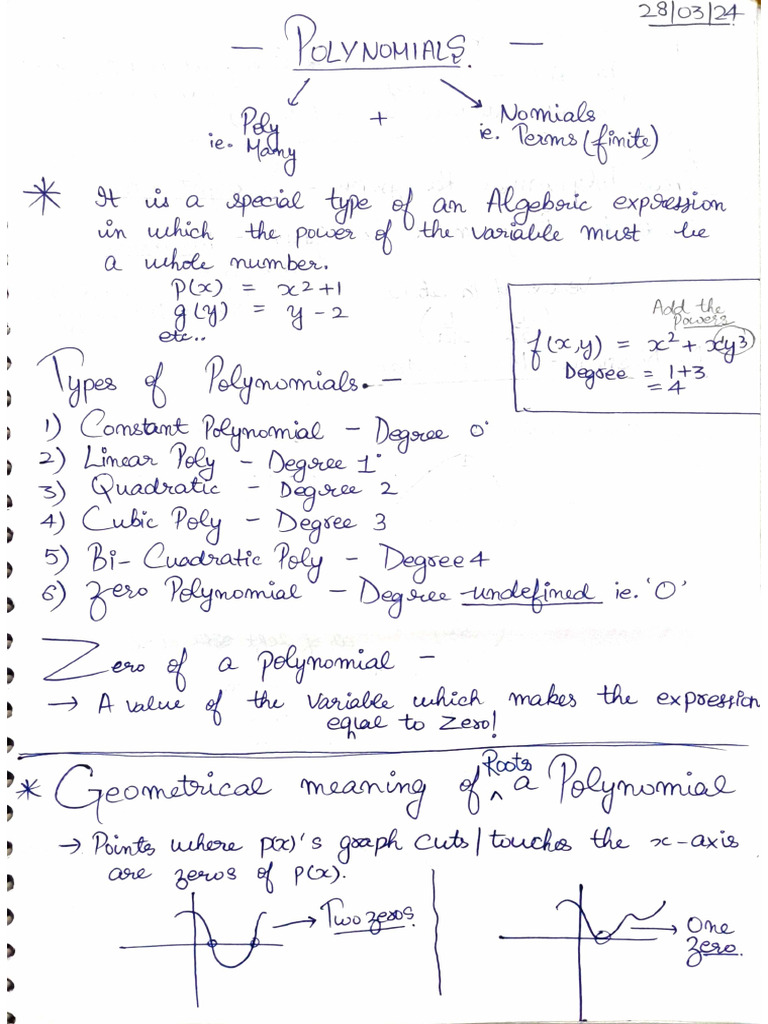 28/03/24
— POLYNOMIALS. —
Poly + Nomials
ie. Many ie. Terms (finite)
* It is a special type of an Algebric expression
in which the power of the variable must be
a whole number.
P(x) = x² + 1
g(y) = y - 2
etc..
Add the
Powers
f(x,y) = x² + x¹y³
Degree = 1+3
= 4
Types of Polynomials. -
1) Constant Polynomial - Degree 0
2) Linear Poly - Degree 1
3) Quadratic - Degree 2
4) Cubic Poly - Degree 3
5) Bi- Cuadratic Poly - Degree 4
6) Zero Polynomial - Degree undefined ie. '0'
Zero of a polynomial -
→ A value of the variable which makes the expression
equal to Zero!
* Geometrical meaning of ^ Roots a Polynomial
→ Points where p(x)'s graph cuts/touches the x-axis
are zeros of P(x).
→ Two zeros.
→ One
zero.